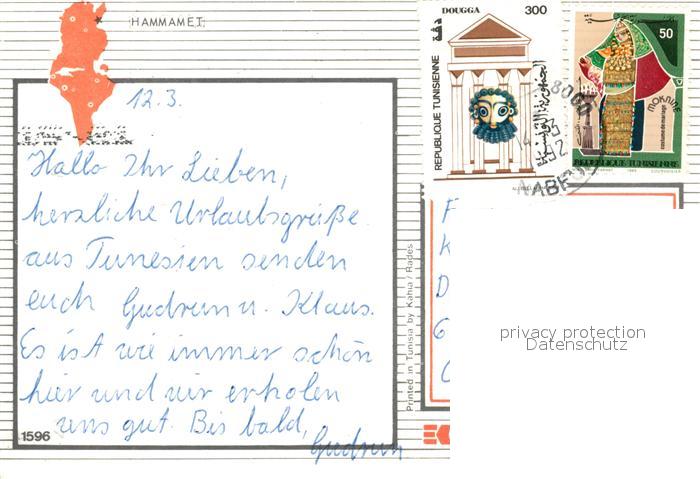 HAMMAMET
12.3.
Hallo Ihr Lieben,
herzliche Urlaubsgrüße
aus Tunesien senden
euch Gudrun u. Klaus.
Es ist wie immer schön
hier und wir erholen
uns gut. Bis bald,
Gudrun
1596
Printed in Tunisia by Kahia / Rades
DOUGGA 300
دقة
REPUBLIQUE TUNISIENNE
الجمهورية التونسية
50
MOKNINE
costume de mariage
REPUBLIQUE TUNISIENNE
8000
NABEUL
F
K
D
G
privacy protection
Datenschutz